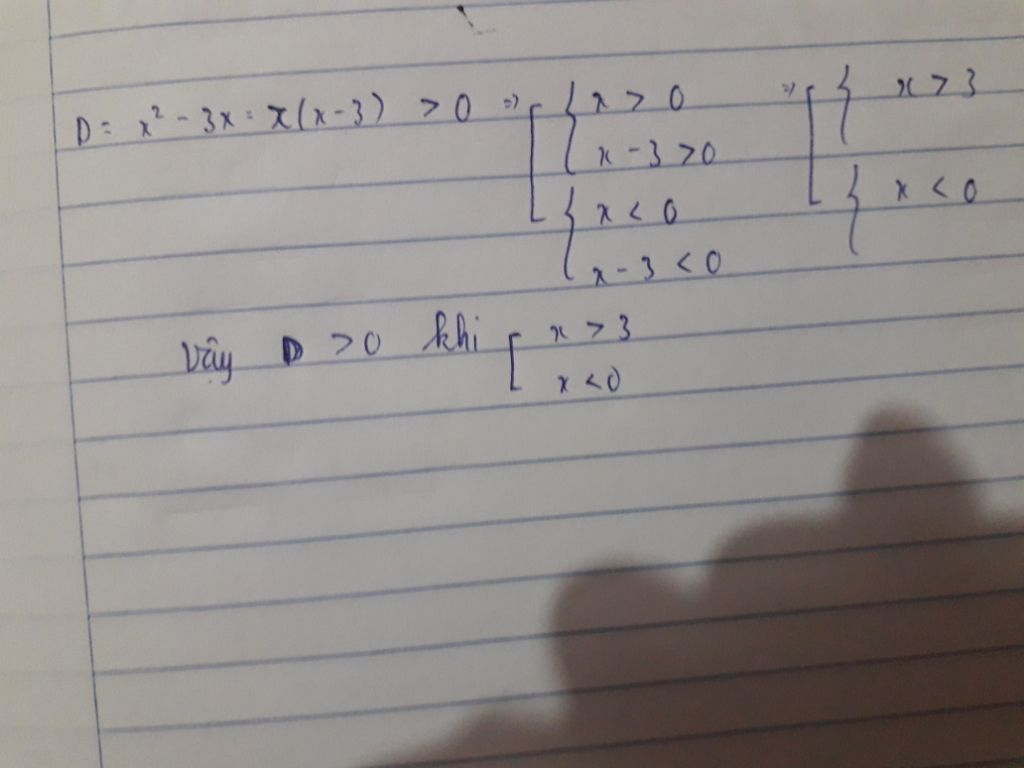 D = x² - 3x = x(x-3) > 0 => [ { x > 0 => [ { x > 3
x - 3 > 0
{ x < 0 { x < 0
x - 3 < 0
Vậy D > 0 khi [ x > 3
x < 0